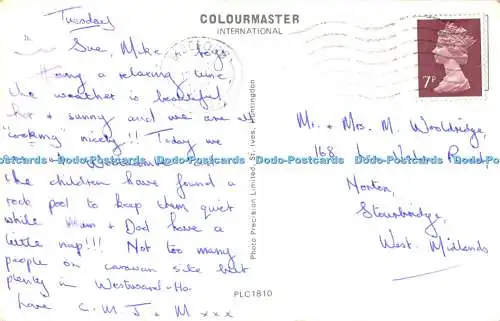 Tuesday
COLOURMASTER
INTERNATIONAL
Sue, Mike + boys,
Having a relaxing time,
the weather is beautiful
hot + sunny and we are all
"cooking" nicely!! Today we
the children have found a
rock pool to keep them quiet
while Mum + Dad have a
little nap!!! Not too many
people on caravan site but
plenty in Westward-Ho.
Love C. M. J. + M xxx
7P
Mr. + Mrs. M. Wooldridge,
168, Road,
Norton,
Stourbridge,
West Midlands
Photo Precision Limited, St. Ives, Huntingdon
PLC1810
Dodo-Postcards Dodo-Postcards Dodo-Postcards Dodo-Postcards